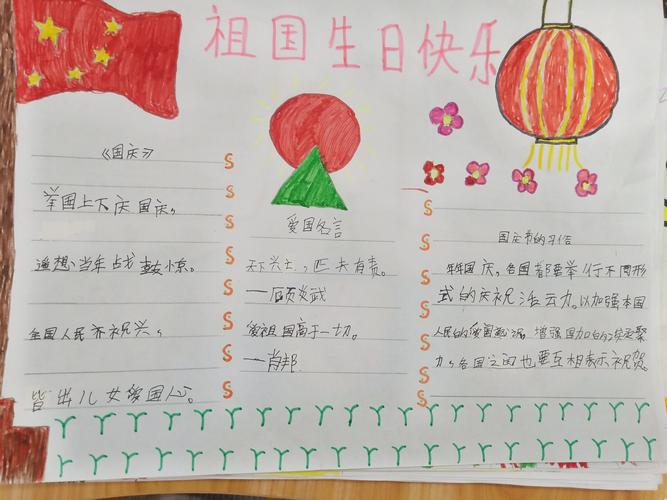 祖国生日快乐
《国庆》
举国上下庆国庆，
遥想当年战鼓惊。
全国人民齐祝兴，
皆出儿女爱国心。
爱国名言
天下兴亡，匹夫有责。
一顾炎武
爱祖国高于一切。
一肖邦
国庆节的习俗
年年国庆，各国都要举行不同形
式的庆祝活动。以加强本国
人民的爱国，增强国加的凝聚
力，各国之间也要互相表示祝贺。